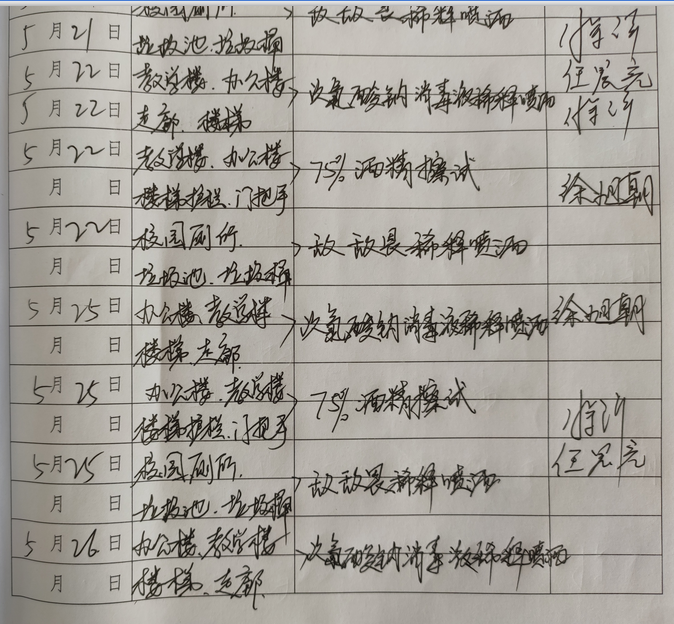 校园厕所 敌敌畏稀释喷洒
5月21日 垃圾池.垃圾桶
5月22日 教学楼.办公楼 次氯酸钠消毒液稀释喷洒
5月22日 走廊.楼梯
5月22日 教学楼.办公楼 75%酒精擦试
月 日 楼梯扶栏.门把手
5月22日 校园厕所. 敌敌畏稀释喷洒
月 日 垃圾池.垃圾桶
5月25日 办公楼、教学楼 次氯酸钠消毒液稀释喷洒
月 日 楼梯.走廊.
5月25日 办公楼.教学楼 75%酒精擦试
月 日 楼梯扶栏.门把手
5月25日 校园厕所. 敌敌畏稀释喷洒
月 日 垃圾池.垃圾桶
5月26日 办公楼、教学楼 次氯酸钠消毒液稀释喷洒
月 日 楼梯.走廊.